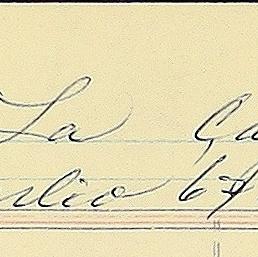 La Ca
ulio 67